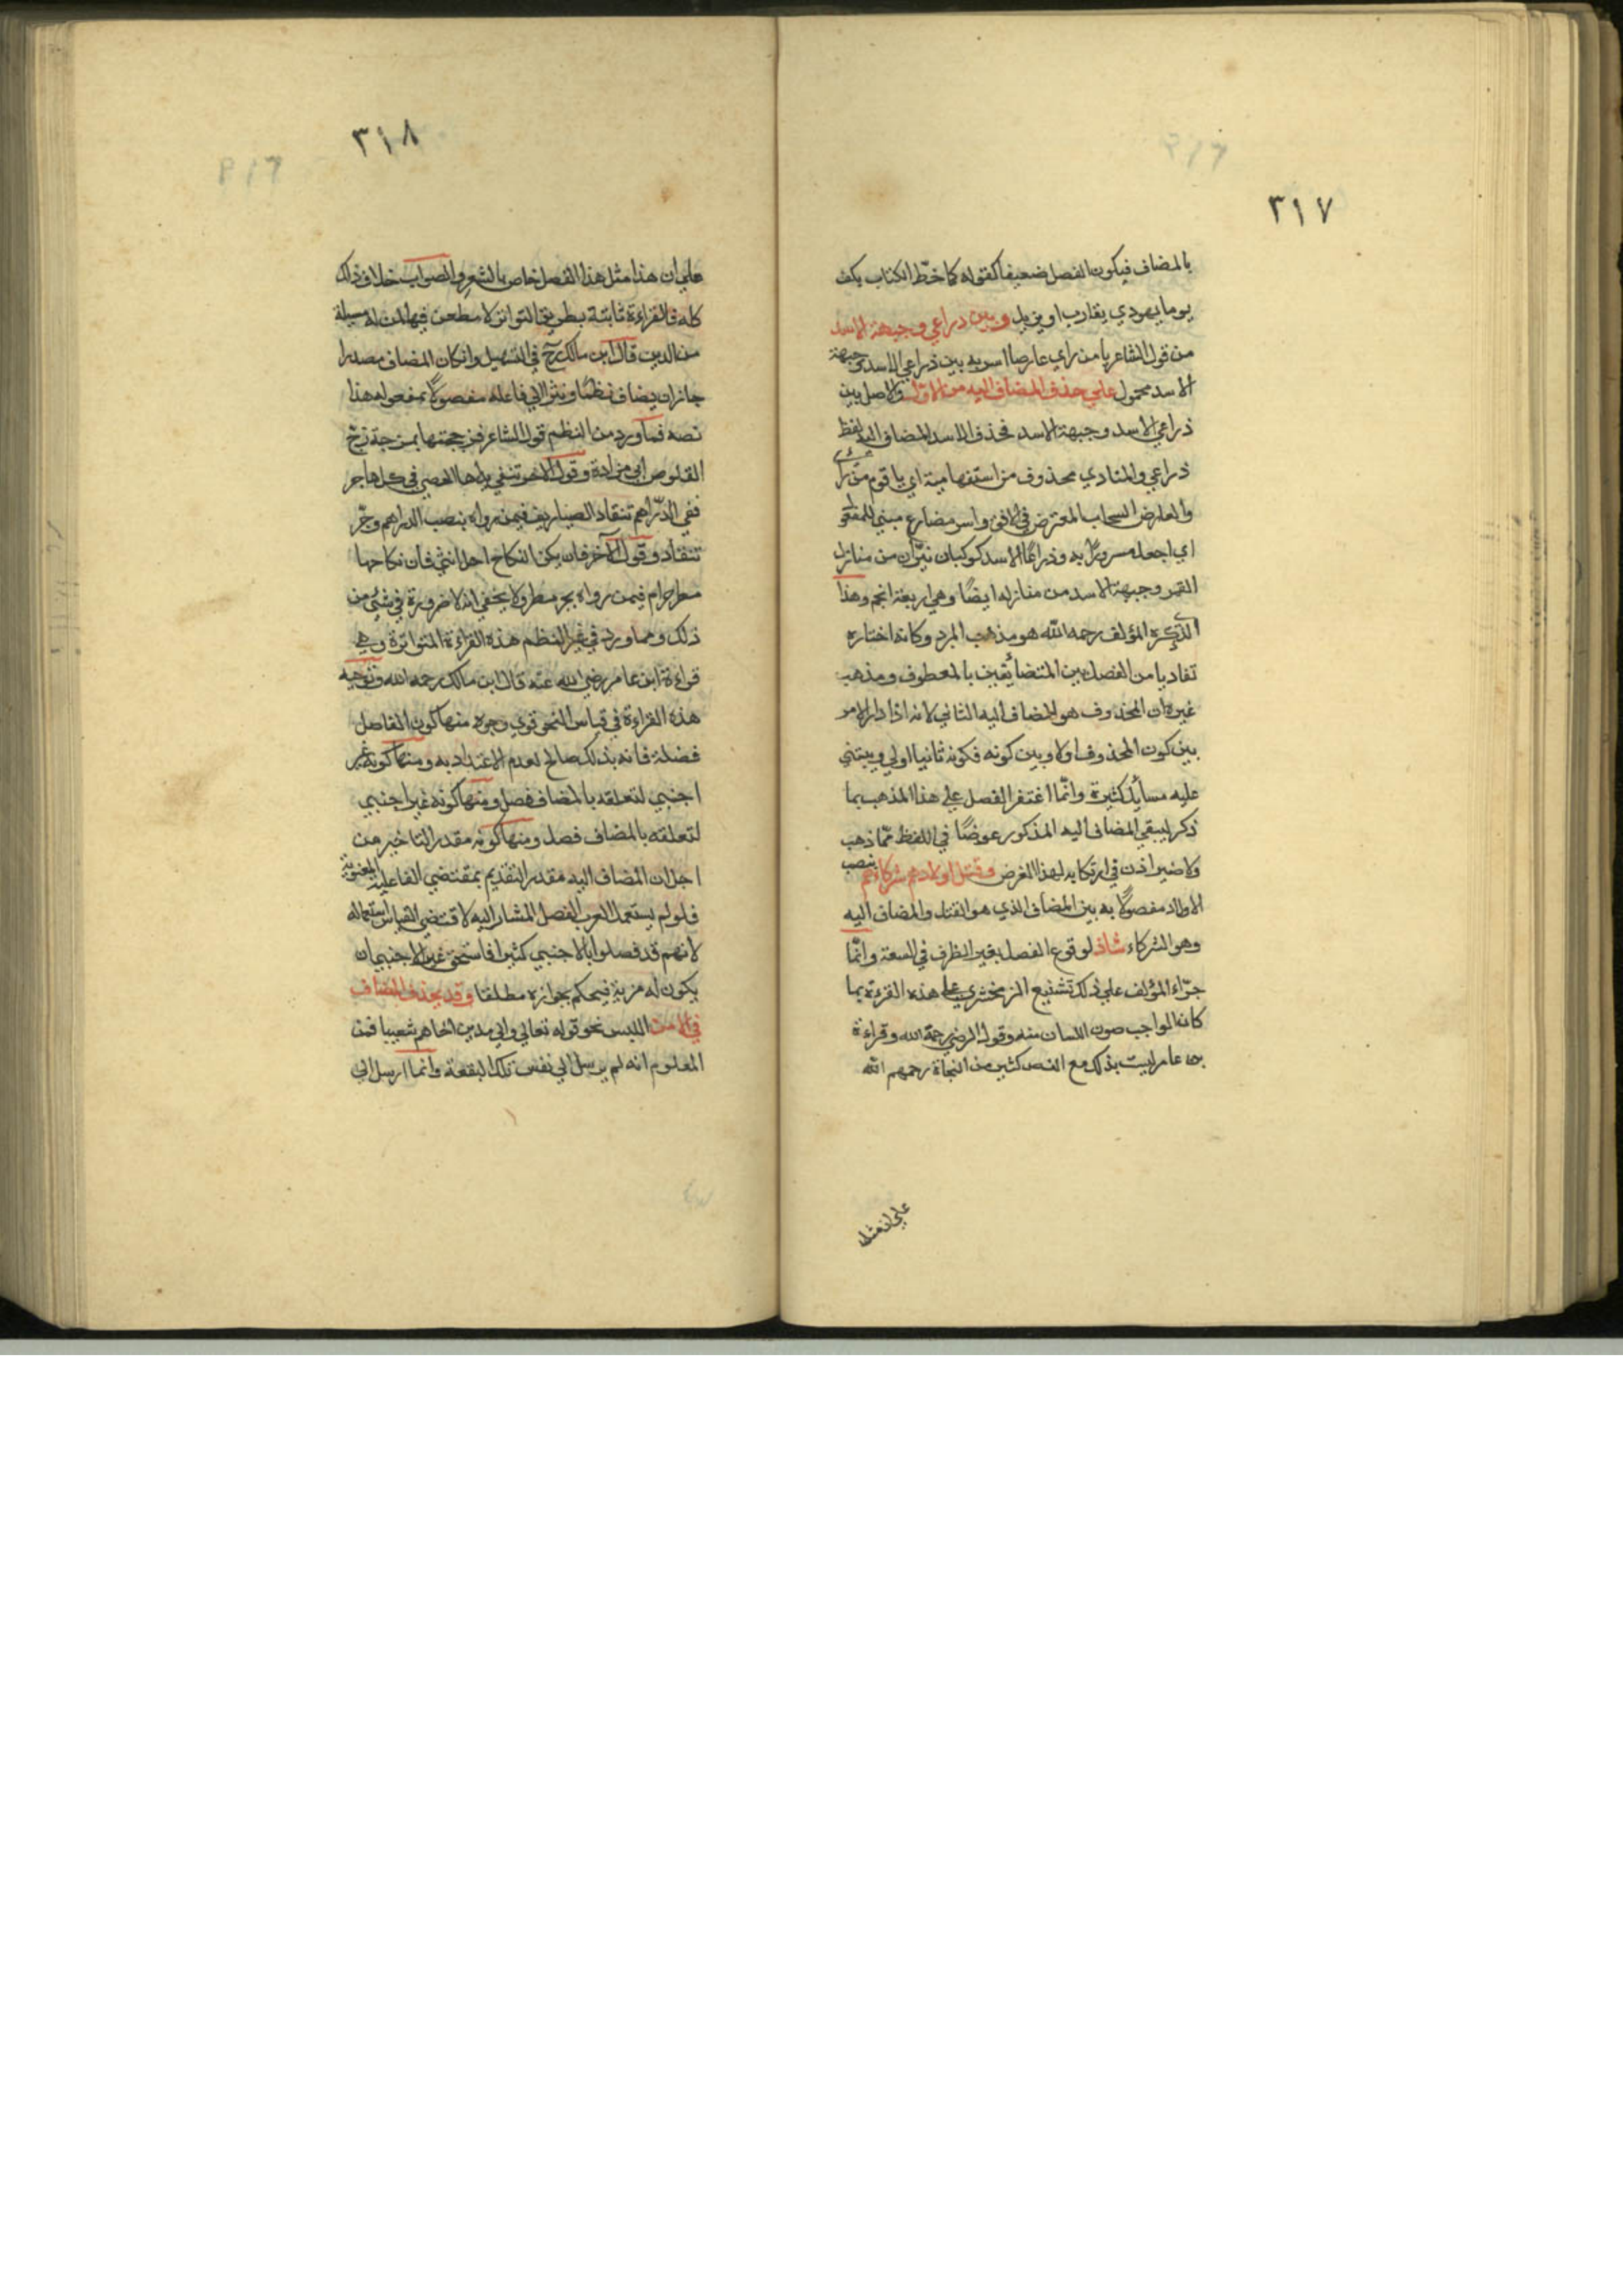 ٣١٧
بالمضاف فيكون الفصل ضعيفا كقوله كما خطّ الكتاب بكف
يوما يهودي يقارب او يزيل وبين ذراعي وجبهة الاسد
من قول الشاعر يا من راي عارضا اسر به بين ذراعي الاسد وجبهة
الاسد محمول علي حذف المضاف اليه من الاول والاصل بين
ذراعي الاسد وجبهة الاسد فحذف الاسد المضاف اليه لفظ
ذراعي والمنادي محذوف من استفهامية اي يا قوم من رأى
والعارض السحاب المعترض في الافق واسر مضارع مبني للمفعو
اي اجعله مسرورًا به وذراعا الاسد كوكبان نيّران من منازل
القمر وجبهة الاسد من منازله ايضًا وهي اربعة انجم وهذا
الذي ذكره المؤلف رحمه الله هو مذهب المبرد وكانه اختاره
تفاديا من الفصل بين المتضائقين بالمعطوف ومذهب
غيره ان المحذوف هو المضاف اليه الثاني لانه اذا دار الامر
بين كون المحذوف اولا وبين كونه فكونه ثانيا اولي ويبتني
عليه مسايل كثيرة وانّما اغتفر الفصل علي هذا المذهب بما
ذكر ليبقي المضاف اليه المذكور عوضًا في اللفظ ممّا ذهب
ولا ضير اذن في ارتكابه لهذا الغرض وقتل اولادهم شركائهم بنصب
الاولاد مفصولًا به بين المضاف الذي هو القتل والمضاف اليه
وهو الشركاء شاذ لوقوع الفصل بغير الظرف في السعة وانّما
جرّاء المؤلف علي ذلك تشنيع الزمخشري علي هذه القرءة بما
كان الواجب صون اللسان منه وقول الرضي رحمة الله وقراءة
بن عامر ليست بذلك مع النص كثير من النحاة رحمهم الله
علي ان مثل
٣١٨
علي ان هذا مثل هذا الفصل خاص بالشعر والصواب خلاف ذلك
كله فالقراءة ثابتة بطريق التواتر لا مطعن فيها لمن له مسيلة
من الدين قال ابن مالك رح في التسهيل وان كان المضاف مصدرا
جاز ان يضاف نظمًا ونثرا الي فاعله مفصولًا بمفعوله هذا
نصه فما ورد من النظم قول الشاعر فزججتها بمزجة زجّ
القلوص ابي مزادة وقول الاخر تنفي يداها الحصي في كل هاجر
نفي الدّراهم تنقاد الصياريف فيمن رواه بنصب الدراهم وجّر
تنقاد وقول الآخر فان يكن النكاح احل انثي فان نكاحها
مطر حرام فيمن رواه بجر مطر ولا يخفي انه لا ضرورة في شئي من
ذلك ومما ورد في غير النظم هذه القراءة المتواترة وهي
قراءة ابن عامر رضي الله عنه قال ابن مالك رحمه الله وتوجيه
هذه القراءة في قياس النحو قوي وجوه منها كون الفاصل
فضلة فانه بذلك صالح لعدم الاعتداد به ومنها كونه غير
اجنبي لتعلقه بالمضاف فصل ومنها كونه غير اجنبي
لتعلقه بالمضاف فصل ومنها كونه مقدر التاخير من
اجل ان المضاف اليه مقدر التقديم بمقتضي الفاعلية المعنوية
فلو لم يستعمل العرب الفصل المشار اليه لاقتضي القياس استعماله
لانهم قد فصلوا بالاجنبي كثيرا فاستحق غير الاجنبي ان
يكون له مزية فيحكم بجوازه مطلقا وقد يحذف المضاف
في الامن اللبس نحو قوله تعالي والي مدين اخاهم شعيبا فمن
المعلوم انه لم يرسل الي نفس تلك البقعة وانما ارسل الي